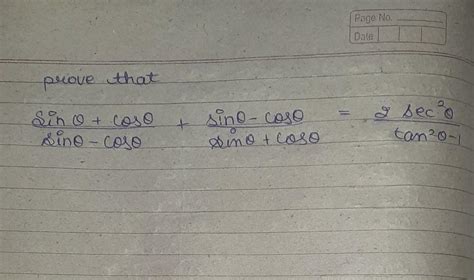 Page No.
Date
prove that
sinθ + cosθ / sinθ - cosθ + sinθ - cosθ / sinθ + cosθ = 2 sec²θ / tan²θ-1